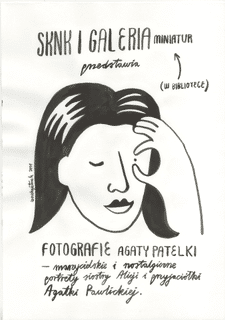 SKNK I GALERIA MINIATUR
przedstawia
(W BIBLIOTECE)
FOTOGRAFIE AGATY PATELKI
– marzycielskie i nostalgiczne
portrety siostry Alicji i przyjaciółki
Agatki Pawlickiej.